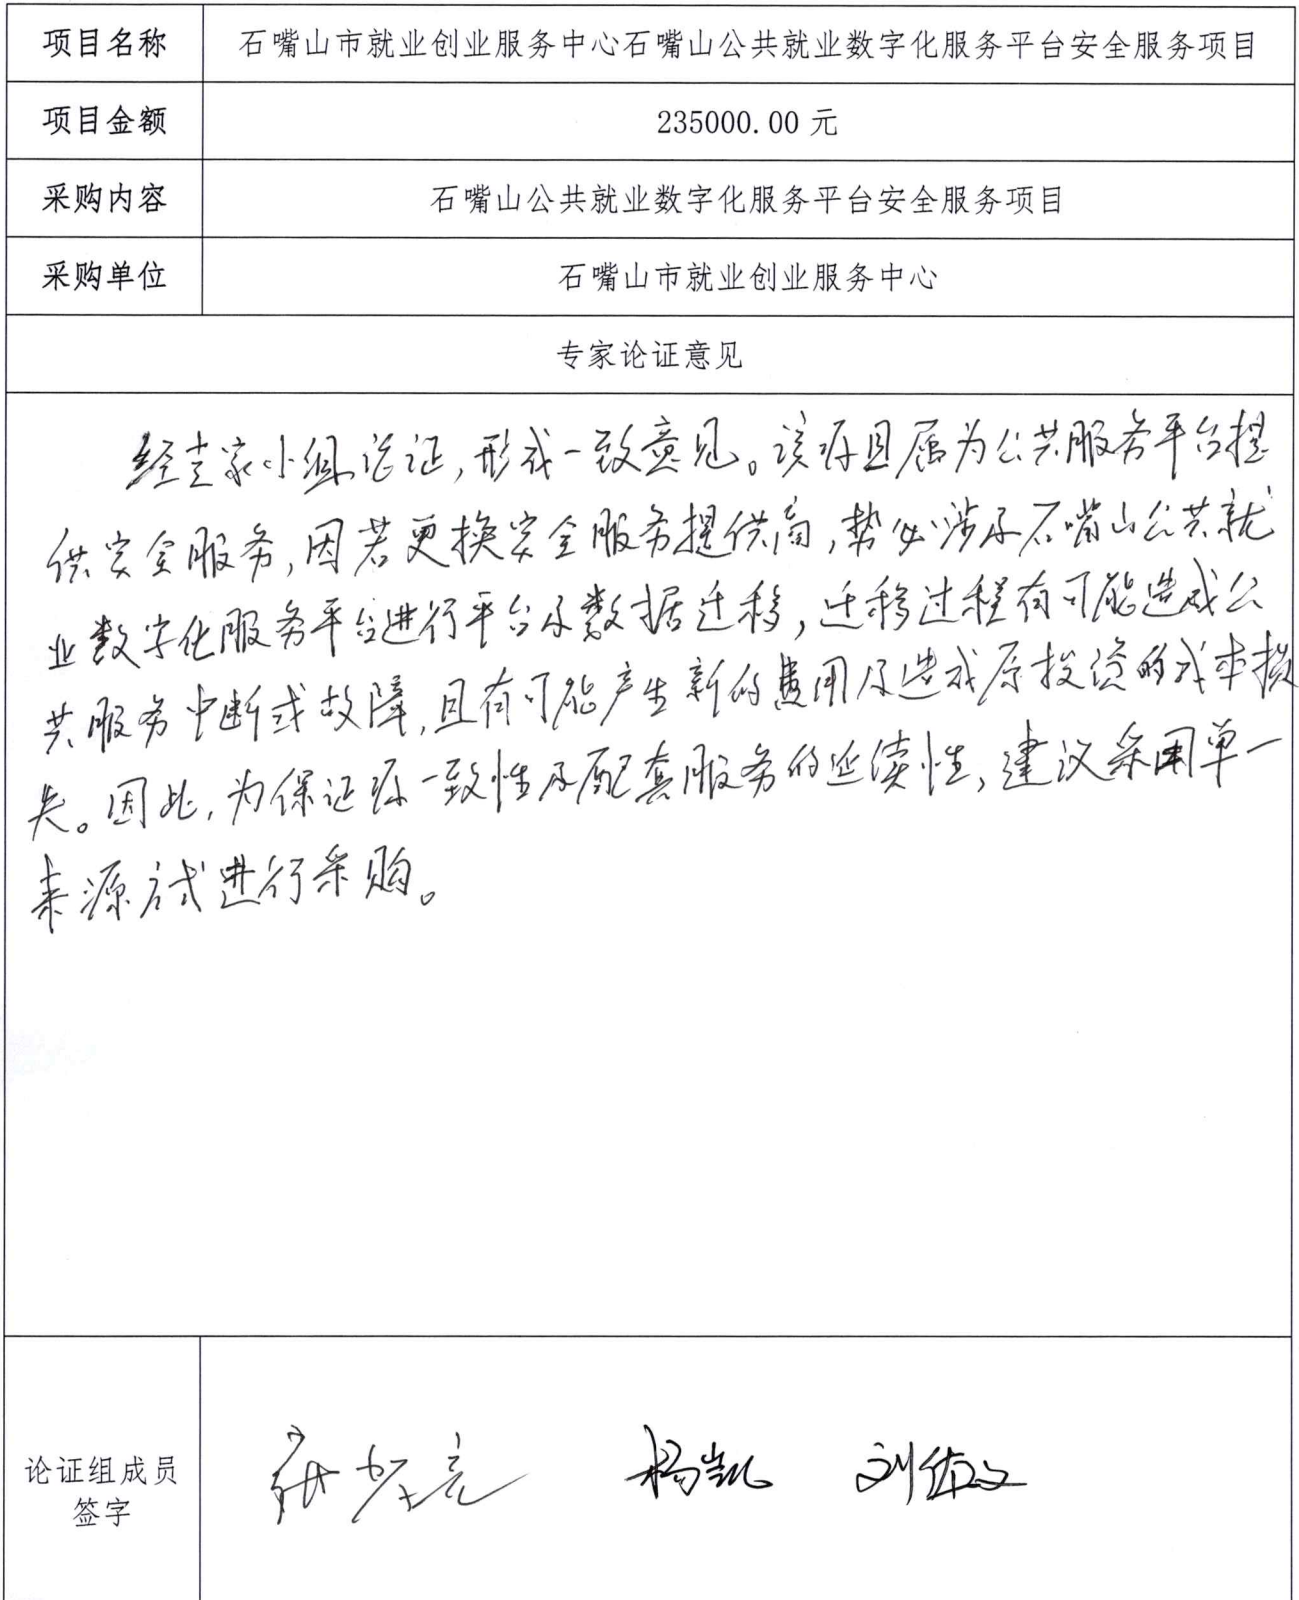 项目名称 石嘴山市就业创业服务中心石嘴山公共就业数字化服务平台安全服务项目
项目金额 235000.00 元
采购内容 石嘴山公共就业数字化服务平台安全服务项目
采购单位 石嘴山市就业创业服务中心
专家论证意见
经专家小组论证,形成一致意见。该项目属为公共服务平台提
供安全服务,因若更换安全服务提供商,势必涉及石嘴山公共就
业数字化服务平台进行平台及数据迁移,迁移过程有可能造成公
共服务中断或故障,且有可能产生新的费用及造成原投资的成本损
失。因此,为保证项一致性及配套服务的延续性,建议采用单一
来源方式进行采购。
论证组成员
签字
杨凯